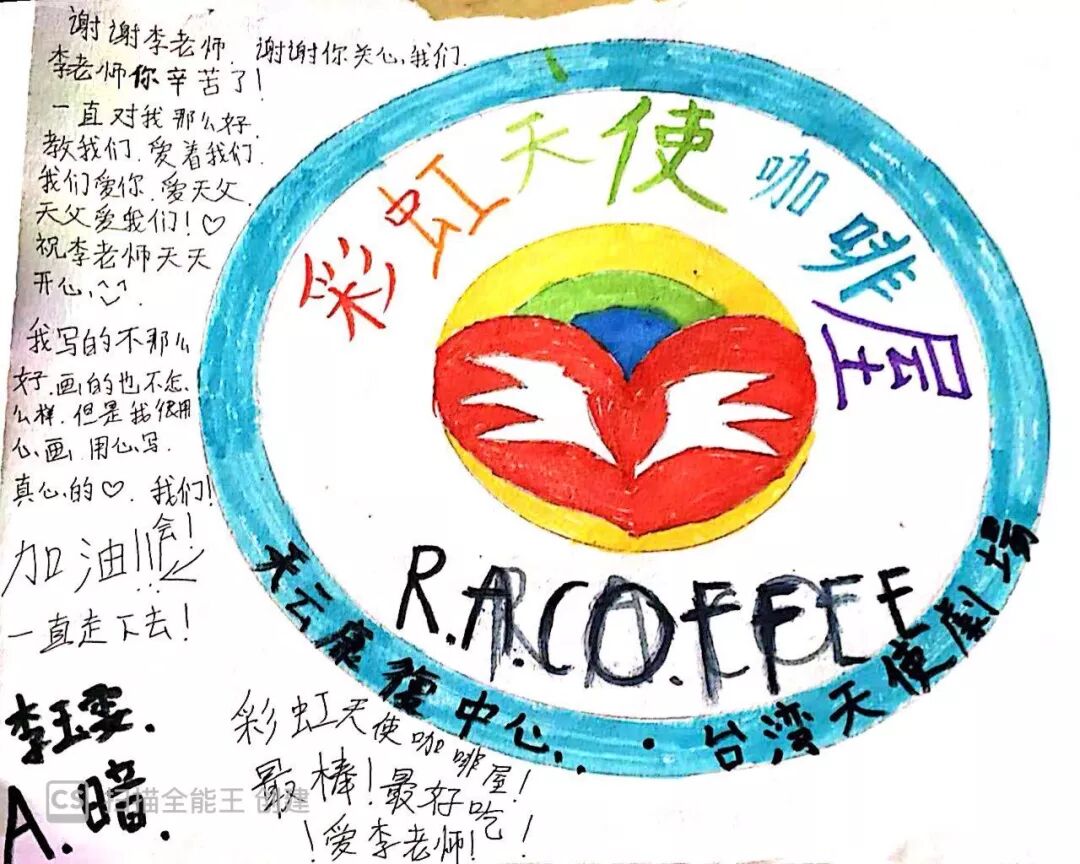 谢谢李老师. 谢谢你关心,我们.
李老师你辛苦了!
一直对我那么好.
教我们.爱着我们.
我们爱你.爱天父.
天父爱我们!♡
祝李老师天天
开心,^_^.
我写的不那么
好.画的也不怎,
么样.但是我很用
心,画.用心,写.
真心,的♡.我们!
会!
加油!!!
一直走下去!
李玉雯.
A.暗.
彩虹天使咖啡屋
R.A.COFFEE
天云康復中心..·台湾天使劇場
彩虹天使咖啡屋!
最棒!最好吃!
!爱李老师!
CS 扫描全能王 创建